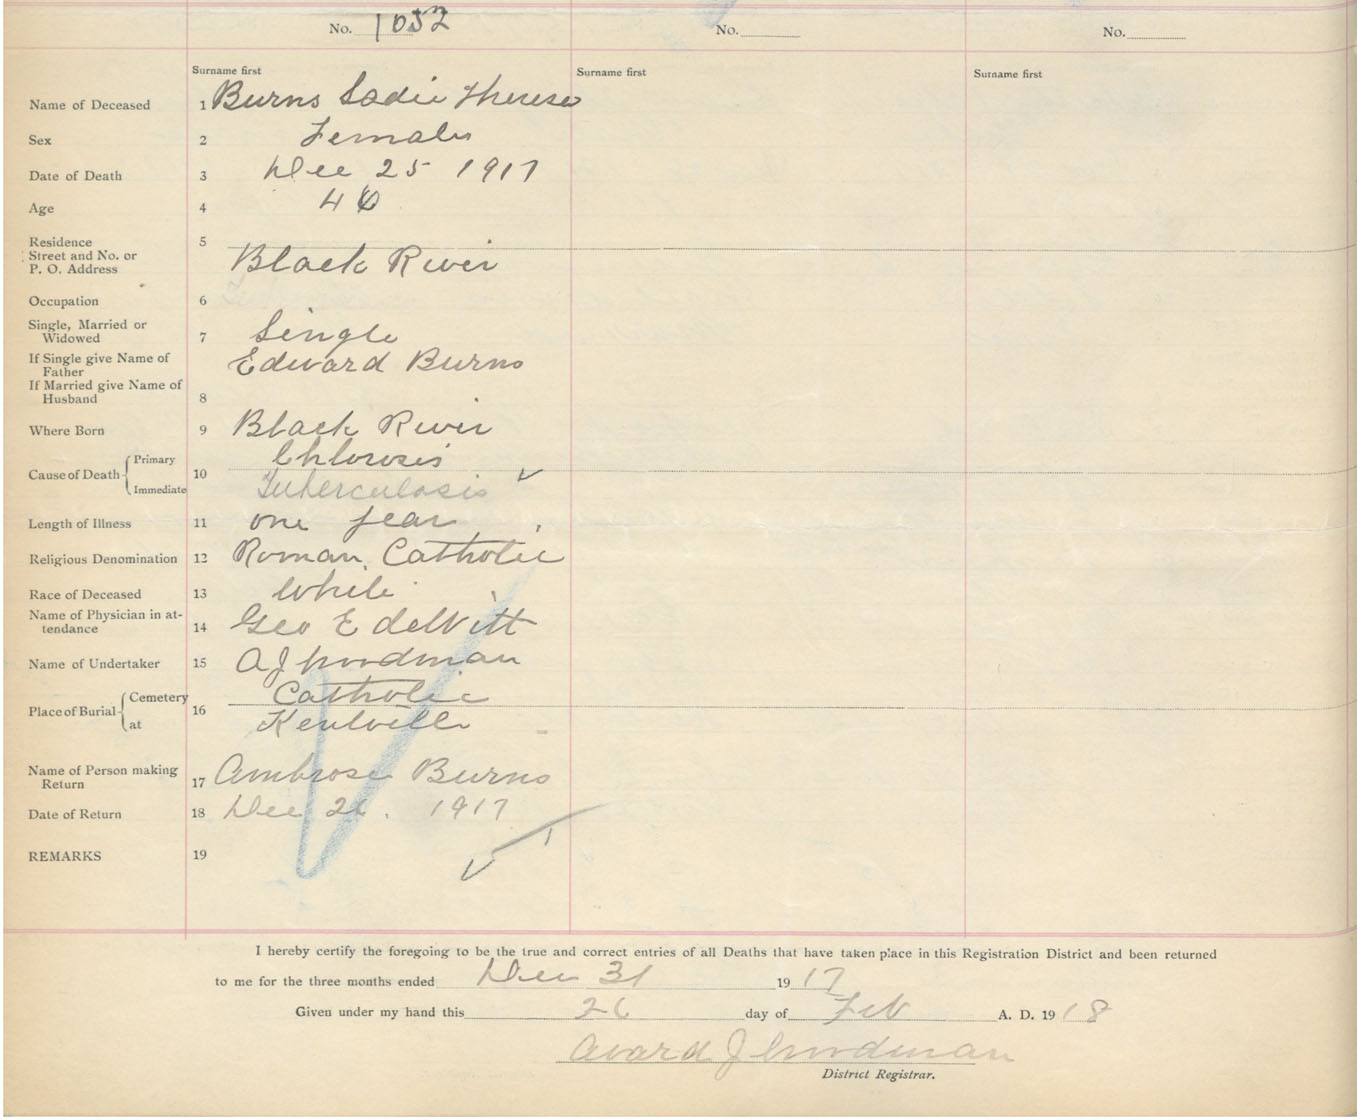 No. 1032 No. No.
Surname first Surname first Surname first
Name of Deceased 1 Burns Sadie Theresa
Sex 2 Female
Date of Death 3 Dec 25 1917
Age 4
Residence 5
Street and No. or
P. O. Address Black River
Occupation 6
Single, Married or
Widowed 7 Single
If Single give Name of
Father Edward Burns
If Married give Name of
Husband 8
Where Born 9 Black River
Cause of Death Primary Chlorosis
10
Immediate Tuberculosis
Length of Illness 11 one year
Religious Denomination 12 Roman Catholic
Race of Deceased 13 White
Name of Physician in at-
tendance 14 Geo E deWitt
Name of Undertaker 15 A J Woodman
Place of Burial Cemetery Catholic
16
at Kentville
Name of Person making
Return 17 Ambrose Burns
Date of Return 18 Dec 26. 1917
REMARKS 19
I hereby certify the foregoing to be the true and correct entries of all Deaths that have taken place in this Registration District and been returned
to me for the three months ended Dec 31 1917
Given under my hand this 26 day of Feb A. D. 1918
Avard J Woodman
District Registrar.